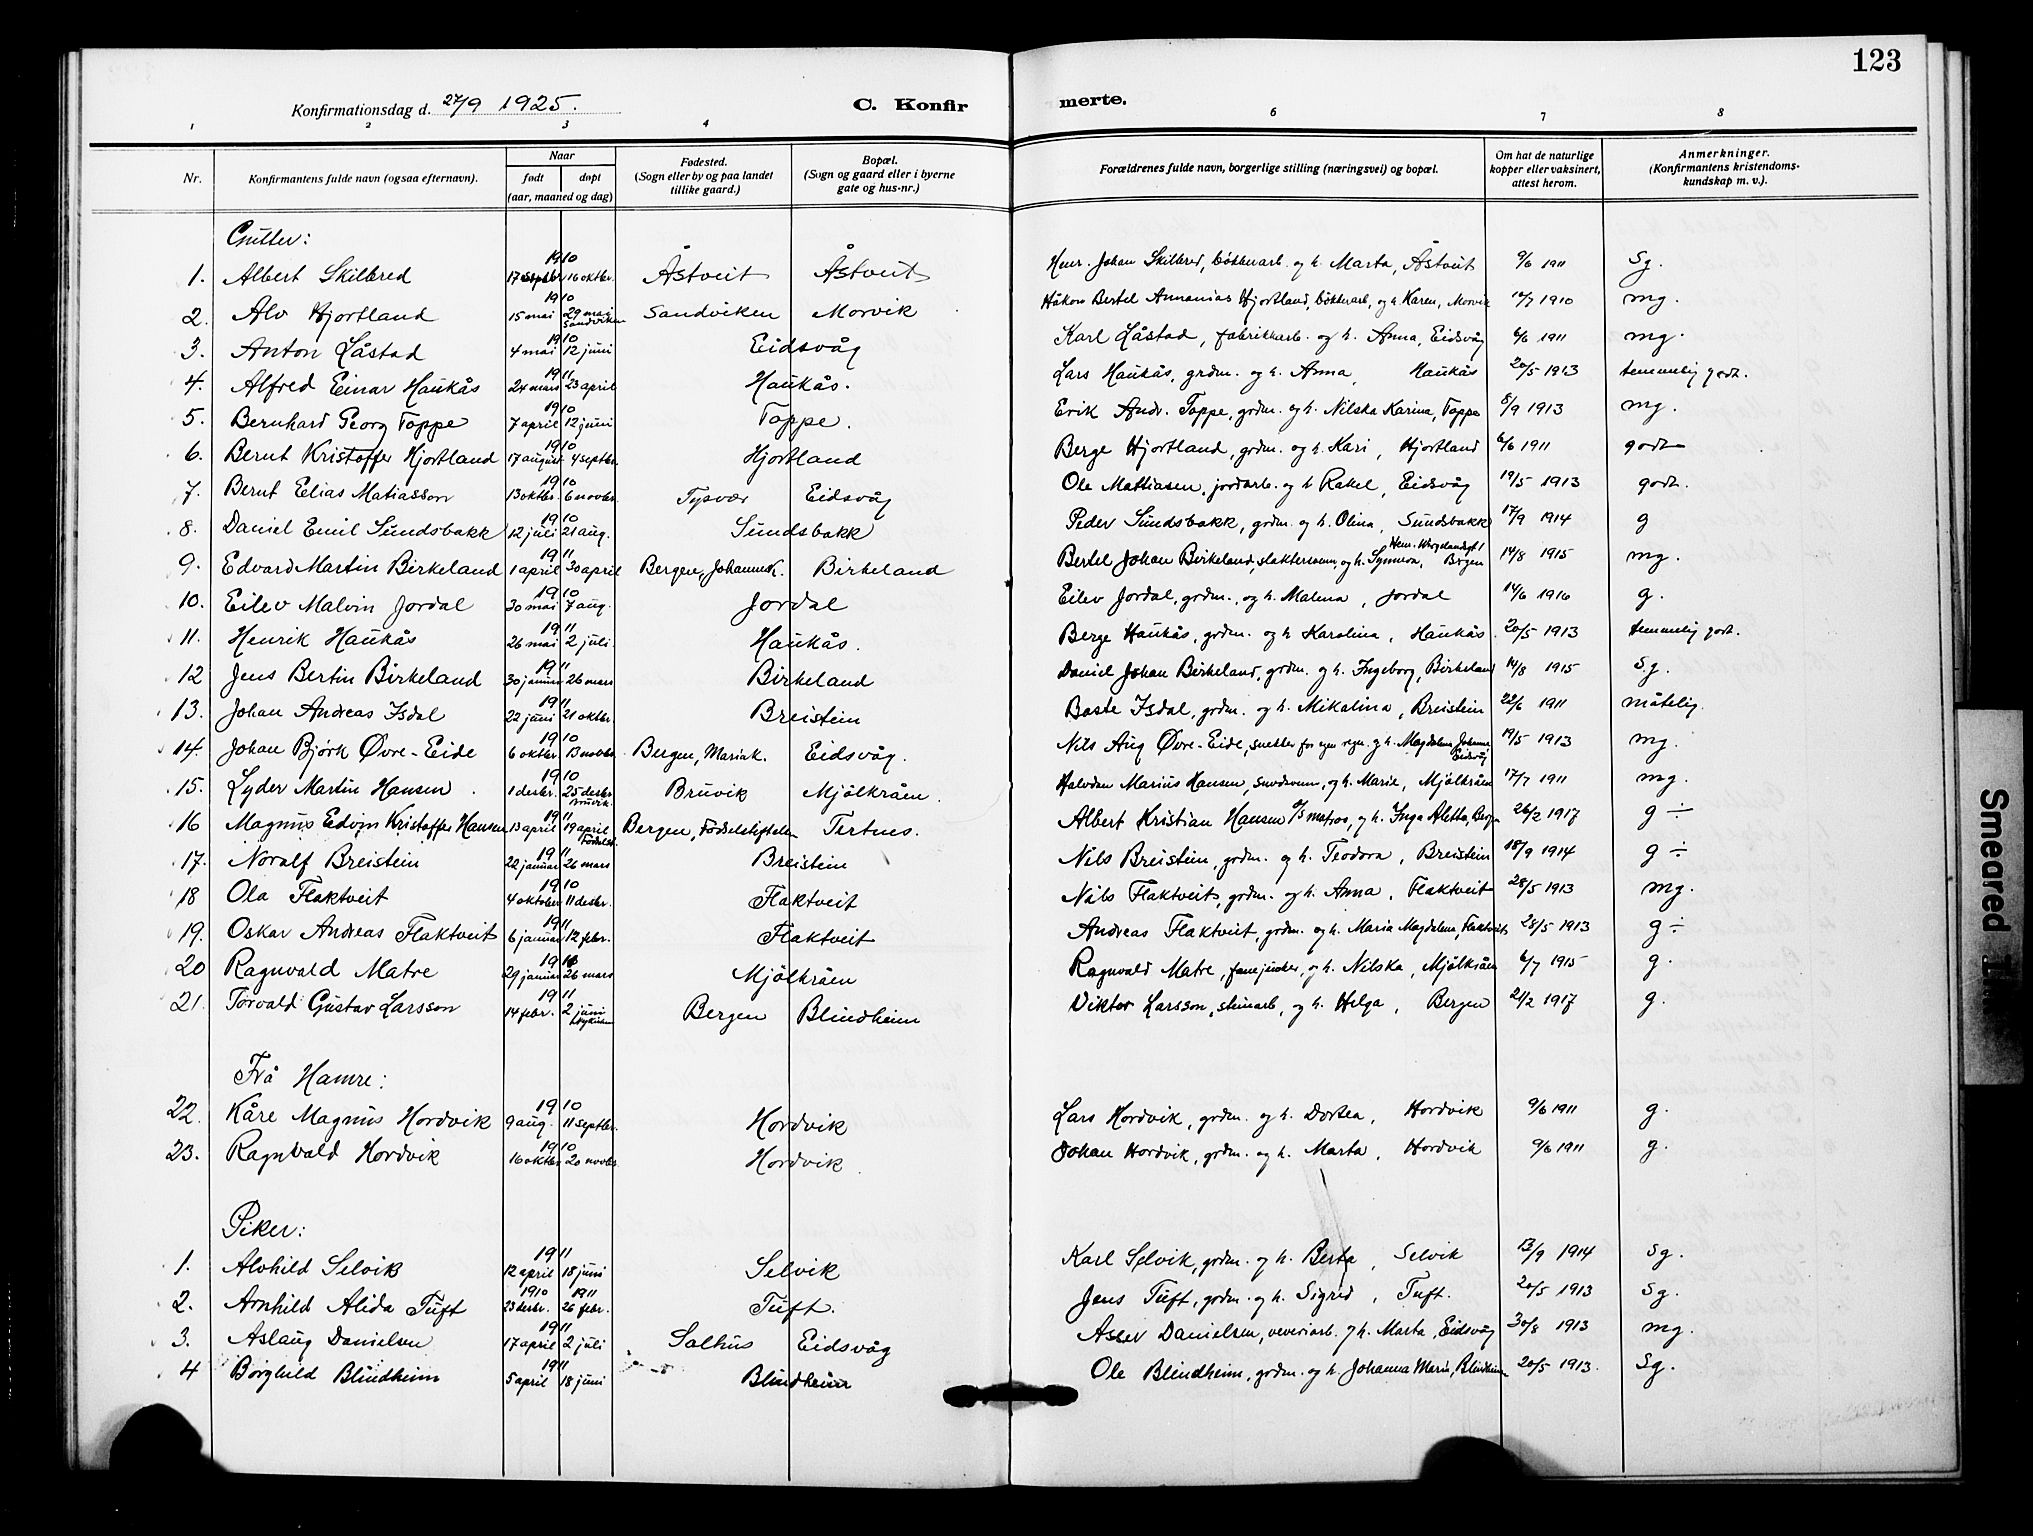 123
Konfirmationsdag d. 27/9 1925. C. Konfirmerte.
1 2 3 4 6 7 8
Nr. Konfirmantens fulde navn (ogsaa efternavn). Naar født døpt (aar, maaned og dag) Fødested. (Sogn eller by og paa landet tillike gaard.) Bopæl. (Sogn og gaard eller i byerne gate og hus-nr.) Forældrenes fulde navn, borgerlige stilling (næringsvei) og bopæl. Om hat de naturlige kopper eller vaksinert, attest herom. Anmerkninger. (Konfirmantens kristendomskundskap m. v.).
Gutter:
1. Albert Skilbred 1910 17 septbr 16 oktbr. Åstveit Åstveit Henr. Johan Skilbred, bøkkerarb. og h. Marta, Åstveit 9/6 1911 Sg.
2. Alv Hjortland 1910 15 mai 29 mai Sandviken Sandviken Morvik Håkon Bertel Annanias Hjortland, bøkkerarb, og h. Karen, Morvik 12/7 1910 mg.
3. Anton Låstad 1910 4 mai 12 juni Eidsvåg Karl Låstad, fabrikkarb. og h. Anna, Eidsvåg 6/6 1911 mg.
4. Alfred Einar Haukås 1911 24 mars 23 april Haukås. Lars Haukås, grdm. og h. Anna, Haukås 20/5 1913 temmelig godt.
5. Bernhard Georg Toppe 1910 7 april 12 juni Toppe. Erik Andr. Toppe, grdm. og h. Nilska Karina, Toppe 8/9 1913 mg.
6. Bernt Kristoffer Hjortland 1910 17 august 4 septbr. Hjortland Berge Hjortland, grdm. og h. Kari, Hjortland 6/6 1911 godt
7. Bernt Elias Matiasson 1910 13 oktbr. 6 novbr. Tysvær Eidsvåg Ole Mattiasen, jordarb. og h Rakel, Eidsvåg 19/5 1913 godt.
8. Daniel Emil Sundsbakk 1910 12 juli 21 aug. Sundsbakk Peder Sundsbakk, grdm. og h. Olina, Sundsbakk 17/9 1914 g
9. Edvard Martin Birkeland 1911 1 april 30 april Bergen, Johannesk. Birkeland Bertel Johan Birkeland, slaktersvenn, og h. Synneva, Bergen 14/8 1915 mg.
10. Eilev Malvin Jordal 1910 30 mai 7 aug. Jordal Eilev Jordal, grdm., og h. Malena, Jordal 14/6 1916 g.
11. Henrik Haukås 1911 26 mai 2 juli. Haukås. Berge Haukås, grdm. og h Karolina, Haukås. 20/5 1913 temmelig godt.
12 Jens Bertin Birkeland 1911 30 januar 26 mars Birkeland Daniel Johan Birkeland, grdm. og h. Ingeborg, Birkeland 14/8 1915 Sg.
13. Johan Andreas Isdal 1911 22 juni 21 oktbr. Breistein Baste Isdal, grdm. og h. Mikalina, Breistein 22/6 1911 måtelig.
14. Johan Bjørk Øvre-Eide 1910 6 oktbr. 13 novbr. Bergen, Mariak. Eidsvåg. Nils Aug Øvre-Eide, snekker for egen regn. og h. Magdalena Johanne, Eidsvåg 19/5 1913 mg.
15. Lyder Martin Hansen 1910 1 desbr. 25 desbr Bruvik Bruvik Mjölkråen. Halvdan Marius Hansen, og h. Marie, Mjölkråen 17/7 1911 mg.
16 Magnus Edvin Kristoffer Hansen 1911 13 april 19 april Födselst. Bergen, Födselstiftelsen Tertnes. Albert Kristian Hansen matros, og h. Inga Aletta, Bergen 26/2 1917 g ÷
17. Noralf Breistein 1911 22 januar 26 mars Breistein Nils Breistein, grdm. og h. Teodora, Breistein 18/9 1914 g ÷
18 Ola Flaktveit 1910 4 oktober 11 desbr. Flaktveit Nils Flaktveit, grdm. og h. Anna, Flaktveit 28/5 1913 mg.
19. Oskar Andreas Flaktveit 1911 6 januar 12 febr. Flaktveit Andreas Flaktveit, grdm. og h. Maria Magdalena, Flaktveit 28/5 1913 g ÷
20 Ragnvald Matre 29 januar 26 mars Mjölkråen Ragnvald Matre, fanejunker, og h. Nilska, Mjölkråen 6/7 1915 g.
21. Torvald Gustav Larsson 1911 14 febr. 2 juni Bergen Blindheim Viktor Larsson, stenarb, og h. Helga, Bergen 21/2 1917 g.
Frå Hamre:
22. Kåre Magnus Hordvik 1910 9 aug. 11 septbr. Hordvik Lars Hordvik, grdm. og h. Dortea, Hordvik 9/6 1911 g.
23. Ragnvald Hordvik 1910 16 oktbr 20 novbr Hordvik Johan Hordvik, grdm. og h. Marta, Hordvik 9/6 1911 g.
Piker:
1. Alvhild Selvik 1911 12 april 18 juni Selvik Karl Selvik, grdm. og h. Berta, Selvik 13/9 1914 Sg.
2. Arnhild Alida Tuft 1910 1911 23 desbr. 26 febr. Tuft. Jens Tuft, grdm. og h. Sigrid, Tuft. 20/5 1913 Sg.
3. Aslaug Danielsen 1911 17 april 2 juli Salhus Eidsvåg Danielsen, veveriarb. og h. Marta, Eidsvåg 30/8 1913 mg.
4 Borghild Blindheim 1911 5 april 18 juni Blindheim Ole Blindheim, grdm. og h. Johanna Marie, Blindheim 20/5 1913. Sg.
Smeared